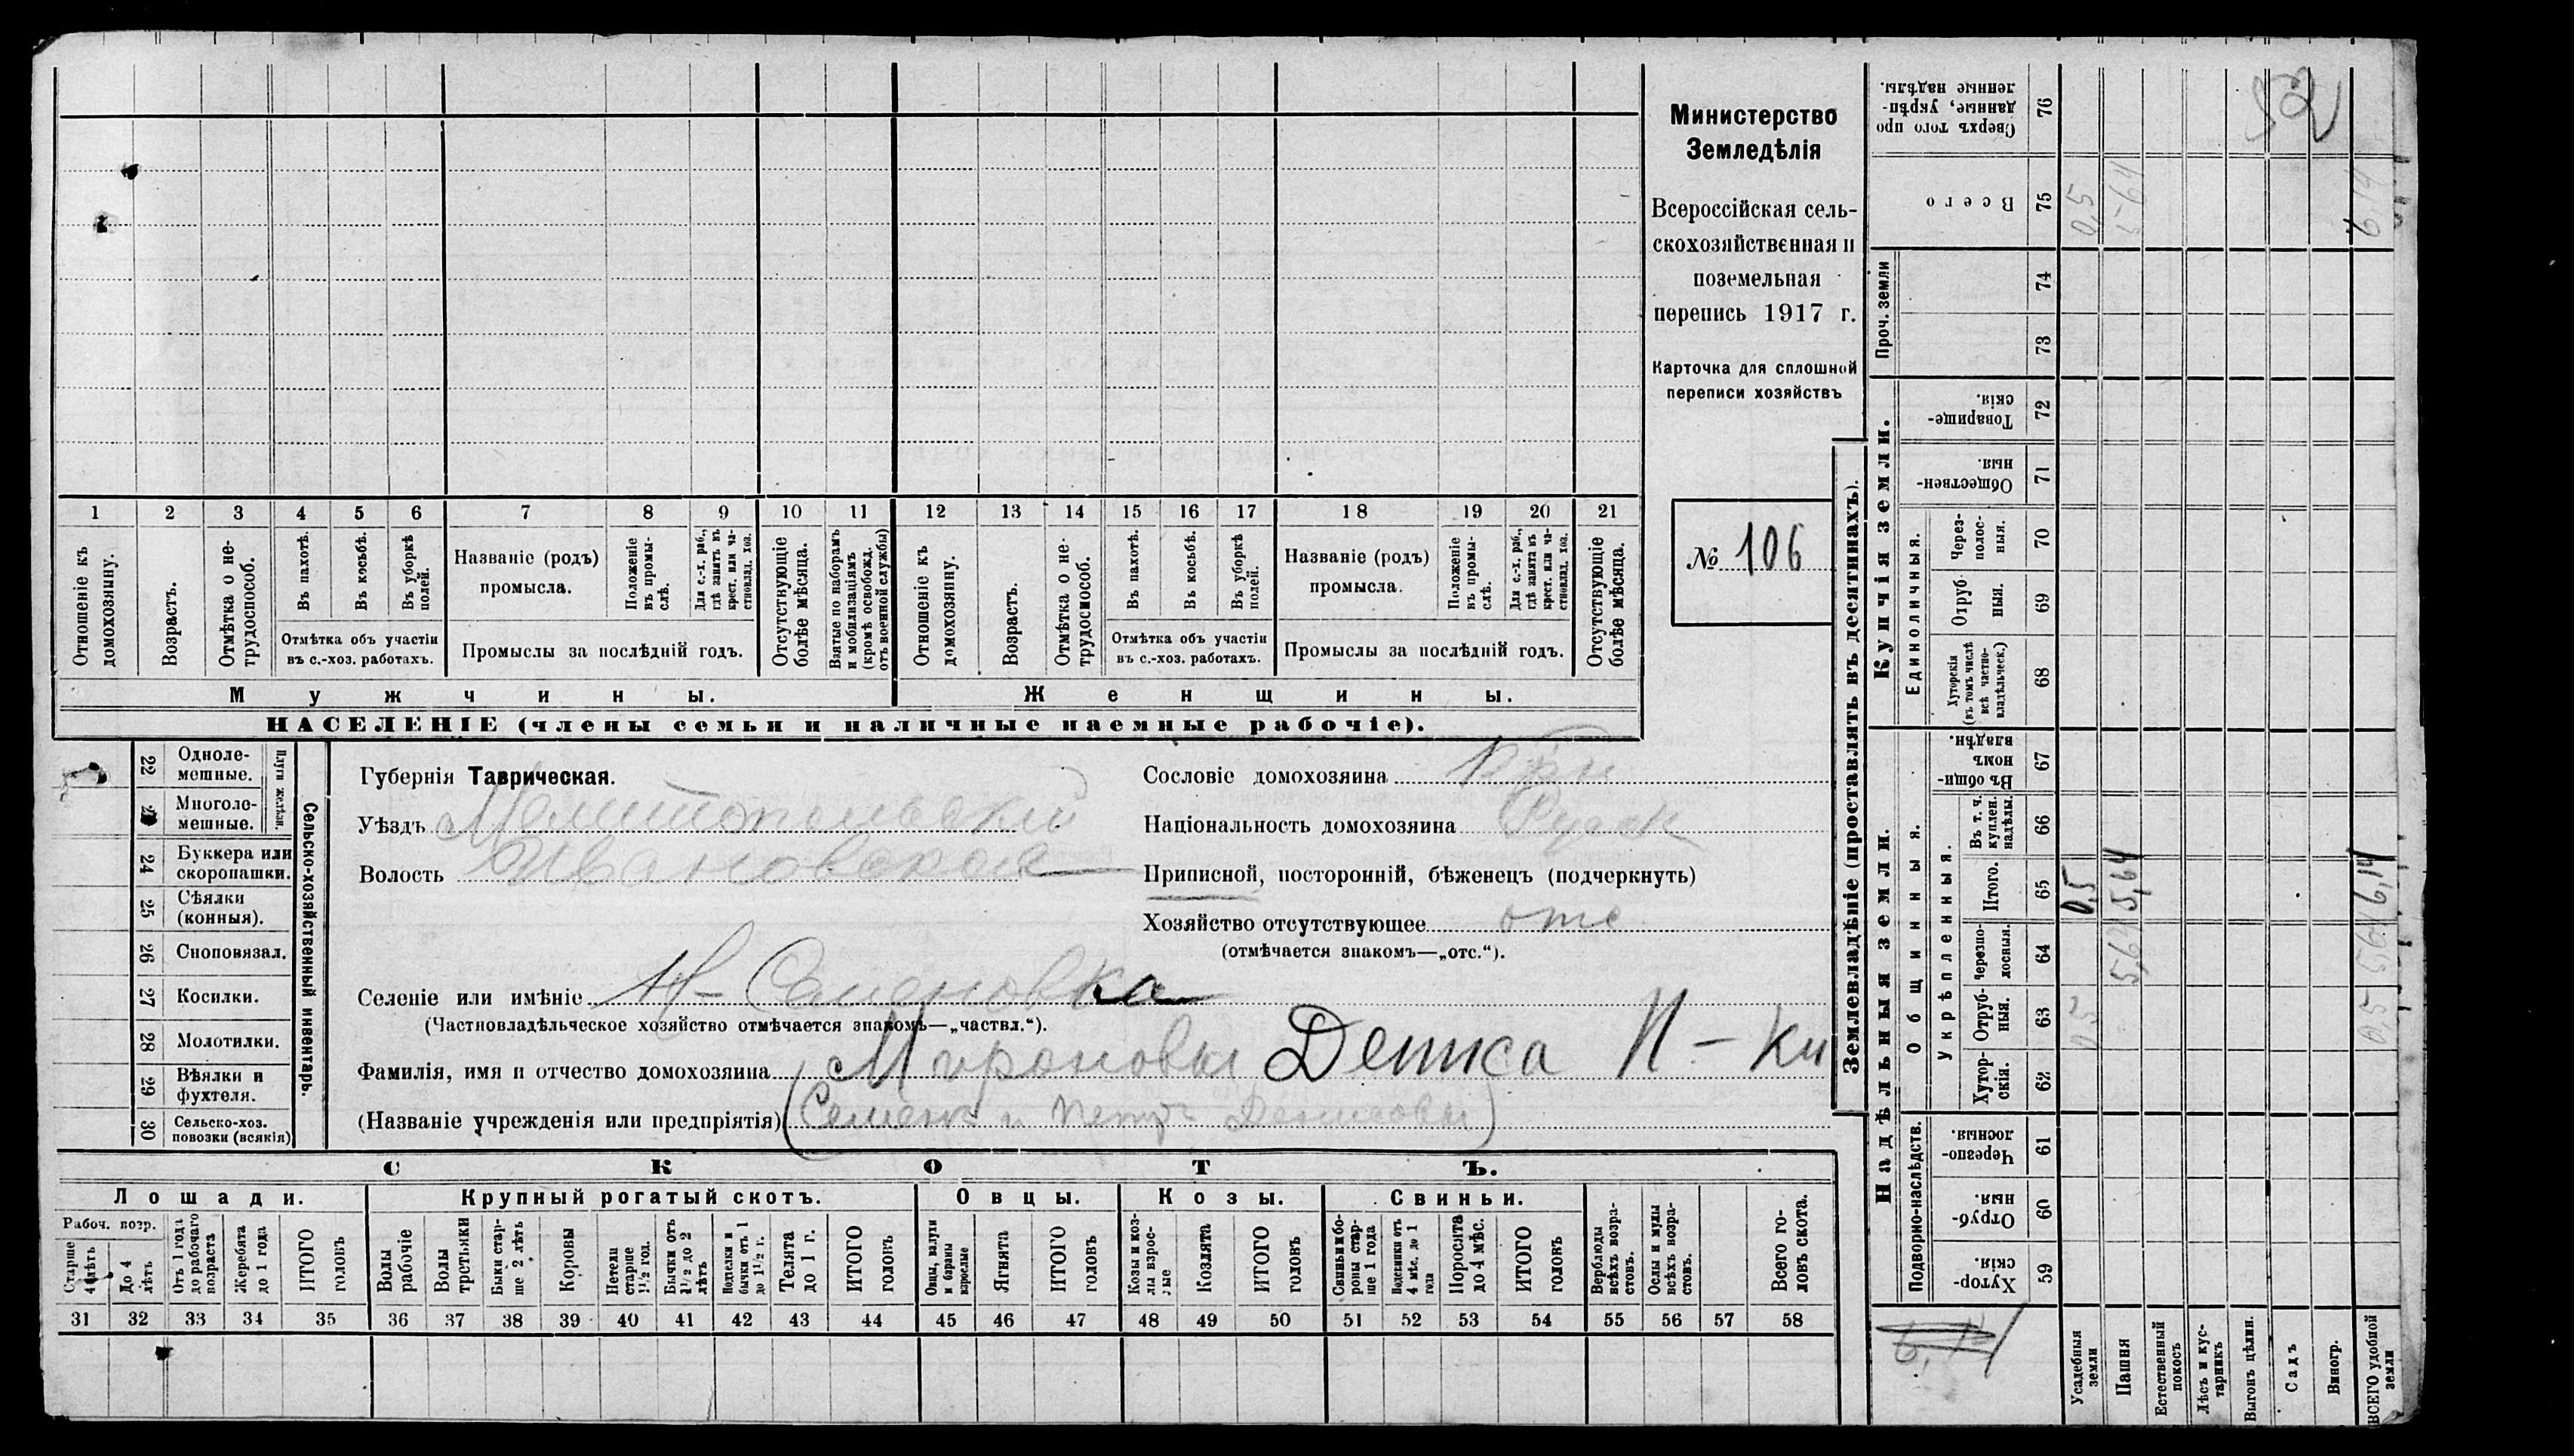 Министерство
Земледѣлія
Всероссійская сель-
скохозяйственная и
поземельная
перепись 1917 г.
Карточка для сплошной
переписи хозяйствъ
№ 106
1 2 3 4 5 6 7 8 9 10 11 12 13 14 15 16 17 18 19 20 21
Отношеніе къ домохозяину.
Возрастъ.
Отмѣтка о не-трудоспособ.
Въ пахотѣ.
Въ косьбѣ.
Въ уборкѣ полей.
Отмѣтка объ участіи
въ с.-хоз. работахъ.
Названіе (родъ)
промысла.
Положеніе въ промы-слѣ.
Для с.-х. раб., гдѣ занятъ въ крест. или ча-стновлад. хоз.
Промыслы за послѣдній годъ.
Отсутствующіе болѣе мѣсяца.
Взятые по наборамъ и мобилизаціямъ (кромѣ освобожд. отъ военной службы)
Отношеніе къ домохозяину.
Возрастъ.
Отмѣтка о не-трудоспособ.
Въ пахотѣ.
Въ косьбѣ.
Въ уборкѣ полей.
Отмѣтка объ участіи
въ с.-хоз. работахъ.
Названіе (родъ)
промысла.
Положеніе въ промы-слѣ.
Для с.-х. раб., гдѣ занята въ крест. или ча-стновлад. хоз.
Промыслы за послѣдній годъ.
Отсутствующіе болѣе мѣсяца.
Мужчины. Женщины.
НАСЕЛЕНІЕ (члены семьи и наличные наемные рабочіе).
22 Одноле-мешные.
Многоле-мешные.
Плуги желѣзн.
24 Буккера или скоропашки.
25 Сѣялки (конныя).
26 Сноповязал.
27 Косилки.
28 Молотилки.
29 Вѣялки и фухтеля.
30 Сельско-хоз. повозки (всякія)
Сельско-хозяйственный инвентарь.
Губернія Таврическая.
Уѣздъ Мелитопольскій
Волость Ивановская
Селеніе или имѣніе Н-Семеновка
(Частновладѣльческое хозяйство отмѣчается знакомъ—„частвл.“).
Фамилія, имя и отчество домохозяина Мироновы Дениса Н-ки
(Названіе учрежденія или предпріятія) (Семенъ и Петръ Денисовы)
Сословіе домохозяина
Національность домохозяина Русск
Приписной, посторонній, бѣженецъ (подчеркнуть)
Хозяйство отсутствующее отс
(отмѣчается знакомъ—„отс.“).
СКОТЪ.
Лошади. Крупный рогатый скотъ. Овцы. Козы. Свиньи.
Рабоч. возр.
Старше 4 лѣтъ
До 4 лѣтъ
Отъ 1 года до рабочаго возраста
Жеребята до 1 года
ИТОГО головъ
Волы рабочіе
Волы третьяки
Быки стар-ше 2 лѣтъ
Коровы
Нетели старше 1½ год.
Бычки отъ 1½ до 2 лѣтъ
Подтелки и бычки отъ 1 до 1½ г.
Телята до 1 г.
ИТОГО головъ
Овцы, валухи и бараны взрослые
Ягнята
ИТОГО головъ
Козы и коз-лы взрос-лые
Козлята
ИТОГО головъ
Свиньи и бо-ровы стар-ше 1 года
Подсвинки отъ 4 мѣс. до 1 года
Поросята до 4 мѣс.
ИТОГО головъ
Верблюды всѣхъ возра-стовъ.
Ослы и мулы всѣхъ возра-стовъ.
Всего го-ловъ скота.
31 32 33 34 35 36 37 38 39 40 41 42 43 44 45 46 47 48 49 50 51 52 53 54 55 56 57 58
Землевладѣніе (проставлять въ десятинахъ).
Надѣльныя земли. Купчія земли. Проч. земли
Подворно-наслѣдств. Общинныя. Укрѣпленныя. Единоличныя.
59 Хутор-скія.
60 Отруб-ныя.
61 Черезпо-лосныя.
62 Хутор-скія.
63 Отруб-ныя. 0,5 0,5
64 Черезпо-лосныя. 5,64 5,64
65 Итого. 0,5 5,64 6,14
66 Въ т. ч. куплен. надѣлы.
67 Въ общи-номъ владѣн.
68 Хуторскія (въ томъ числѣ всѣ частно-владѣльческ.)
69 Отруб-ныя.
70 Через-полос-ныя.
71 Обществен-ныя.
72 Товарище-скія.
73
74
75 Всего 0,5 5-64 6,14
76 Сверхъ того про-данные, укрѣп-ленные надѣлы.
52
6,14
Усадебныя земли
Пашня
Естественный покосъ
Лѣсъ и кус-тарникъ
Выгонъ цѣлин.
Садъ
Виногр.
ВСЕГО удобной земли